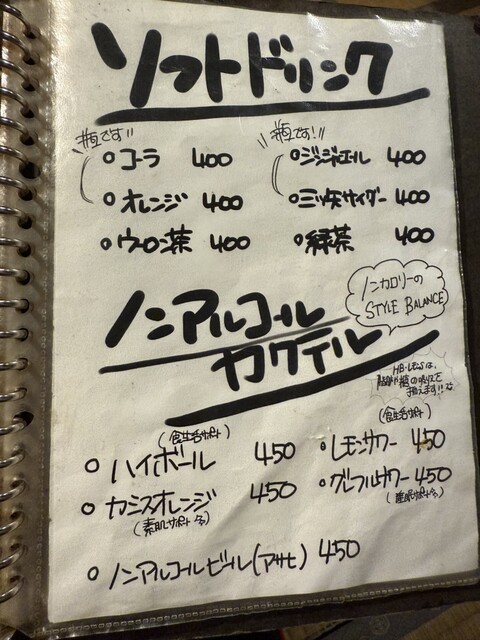 ソフトドリンク
瓶です!!
瓶です!!
コーラ 400
ジンジャエール 400
オレンジ 400
三ツ矢サイダー 400
ウーロン茶 400
緑茶 400
ノンアルコール
カクテル
ノンカロリーの
STYLE BALANCE
の吸収を
抑えます!!
(食生活サポート)
(食生活サポート)
ハイボール 450
レモンサワー 450
カシスオレンジ 450
(素肌サポート)
グレフルサワー 450
(睡眠サポート)
ノンアルコールビール(アサヒ) 450